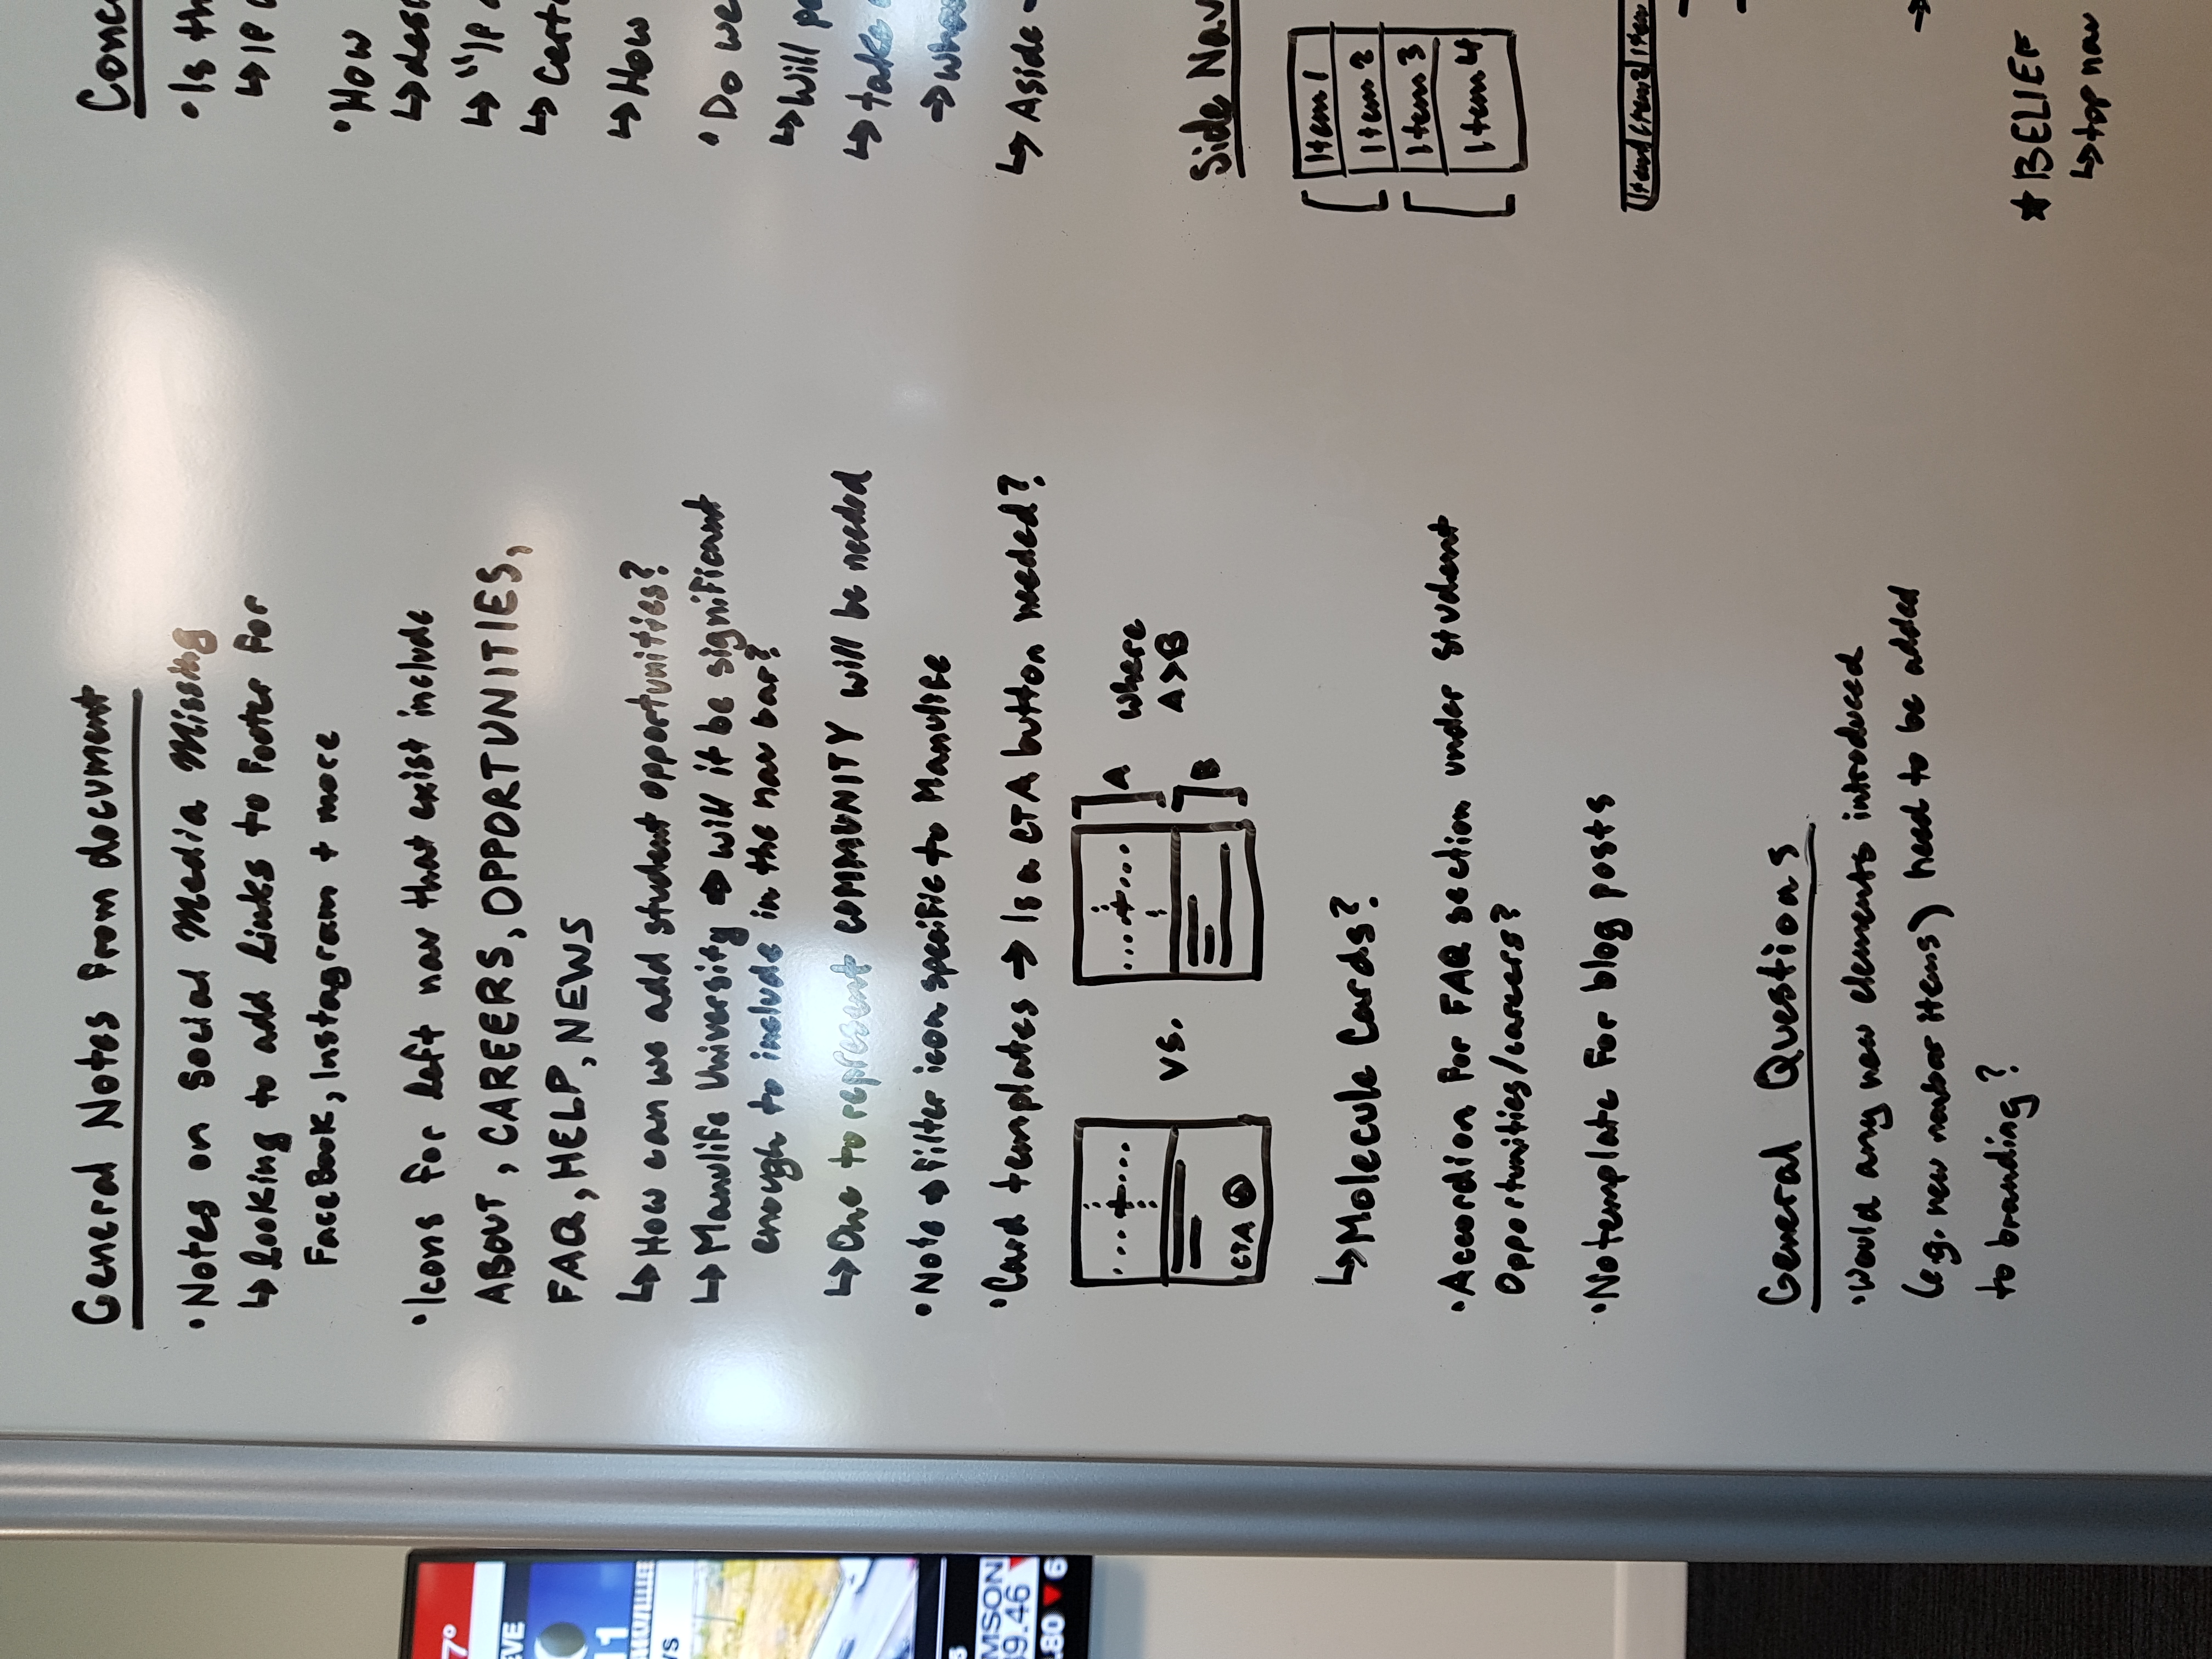 General Notes from document
•Notes on Social Media Missing
↳ looking to add links to footer for
FaceBook, Instagram + more
•Icons for left nav that exist include
ABOUT, CAREERS, OPPORTUNITIES,
FAQ, HELP, NEWS
↳ How can we add student opportunities?
↳ Manulife University → will it be significant
enough to include in the nav bar?
↳ One to represent COMMUNITY will be needed
•Note → filter icon specific to Manulife
•Card templates → Is a CTA button needed?
CTA
vs.
A
B
where
A>B
↳ Molecule Cards?
•Accordion for FAQ section under student
Opportunities/careers?
•No template for blog posts
General Questions
•Would any new elements introduced
(e.g. new navbar items) need to be added
to branding?
Conc
•Is th
↳ If
•How
↳ desi
↳ "If
↳ Certa
↳ How
•Do we
↳ Will pe
↳ take
↳ Aside
Side Nav
Item 1
Item 2
Item 3
Item 4
Item1 Item2 Item
★ BELIEF
↳ top nav
7°
EVE
11
VS
MSON
39.46
.80 ▼ 6